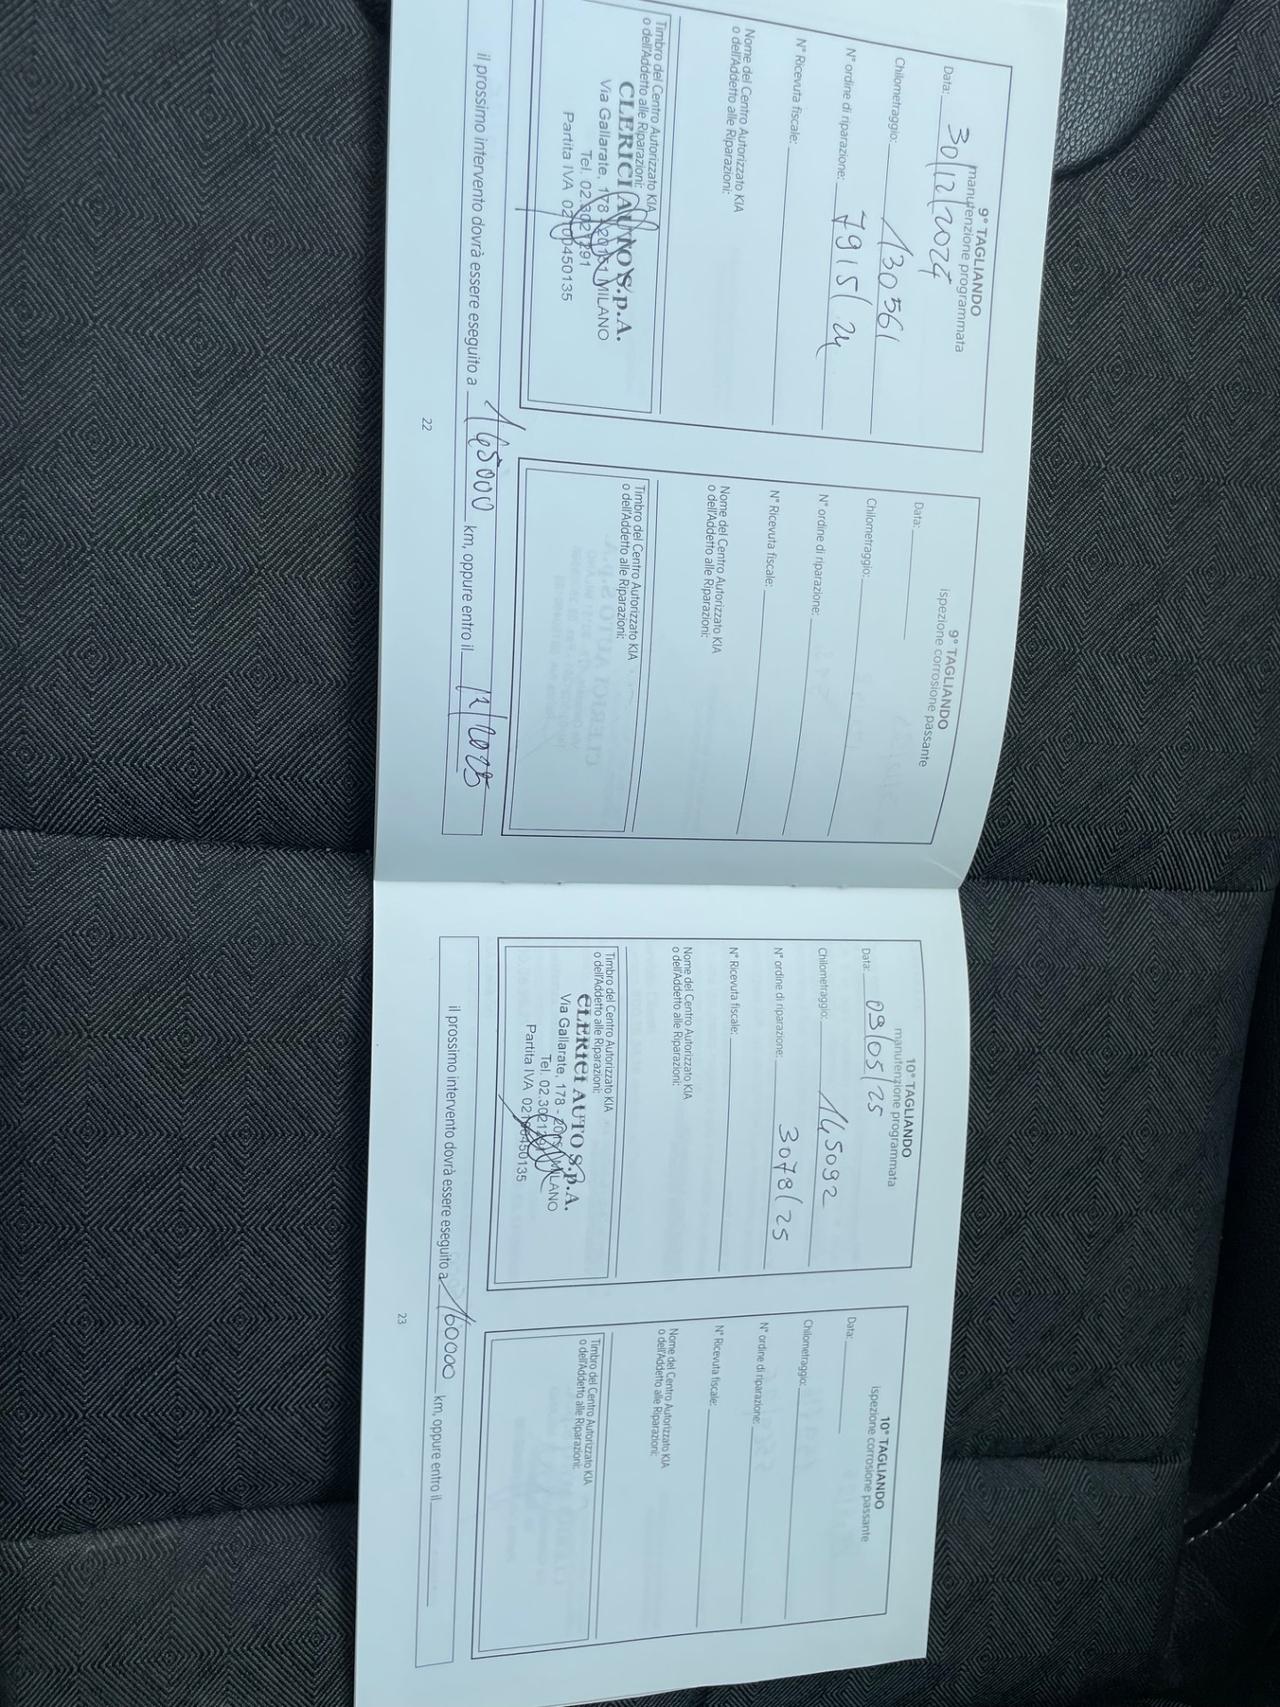 9° TAGLIANDO
manutenzione programmata
Data: 30/12/2024
Chilometraggio: 130561
N° ordine di riparazione: 7915/24
N° Ricevuta fiscale:
Nome del Centro Autorizzato KIA
o dell'Addetto alle Riparazioni:
Timbro del Centro Autorizzato KIA
o dell'Addetto alle Riparazioni:
CLERICI AUTO S.p.A.
Via Gallarate, 178 - 20151 MILANO
Tel. 02.3021291
Partita IVA 02100450135
9° TAGLIANDO
ispezione corrosione passante
Data:
Chilometraggio:
N° ordine di riparazione:
N° Ricevuta fiscale:
Nome del Centro Autorizzato KIA
o dell'Addetto alle Riparazioni:
Timbro del Centro Autorizzato KIA
o dell'Addetto alle Riparazioni:
il prossimo intervento dovrà essere eseguito a 145000 km, oppure entro il 12/2025
22
10° TAGLIANDO
manutenzione programmata
Data: 09/05/25
Chilometraggio: 145092
N° ordine di riparazione: 3078/25
N° Ricevuta fiscale:
Nome del Centro Autorizzato KIA
o dell'Addetto alle Riparazioni:
Timbro del Centro Autorizzato KIA
o dell'Addetto alle Riparazioni:
CLERICI AUTO S.p.A.
Via Gallarate, 178 - 20151 MILANO
Tel. 02.3021291
Partita IVA 02100450135
10° TAGLIANDO
ispezione corrosione passante
Data:
Chilometraggio:
N° ordine di riparazione:
N° Ricevuta fiscale:
Nome del Centro Autorizzato KIA
o dell'Addetto alle Riparazioni:
Timbro del Centro Autorizzato KIA
o dell'Addetto alle Riparazioni:
il prossimo intervento dovrà essere eseguito a 160000 km, oppure entro il
23